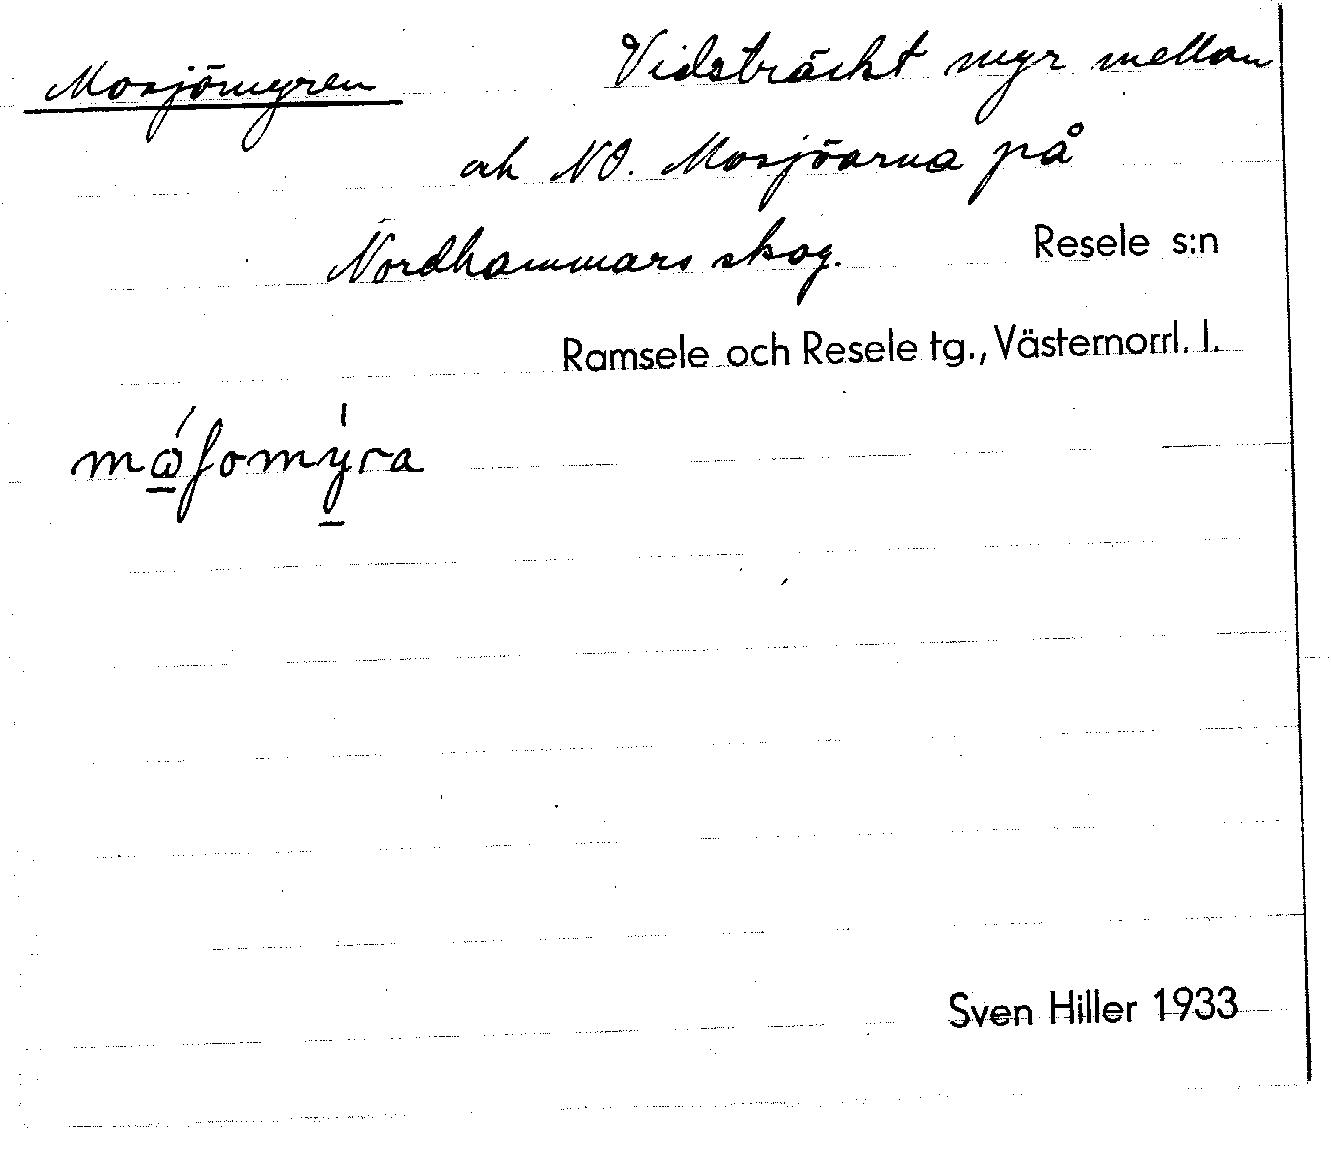 Mosjömyren
Vidsträckt myr mellan
och NO. Mosjöarna på
Nordhammars skog.
Resele s:n
Ramsele och Resele tg., Västernorrl. l.
Sven Hiller 1933